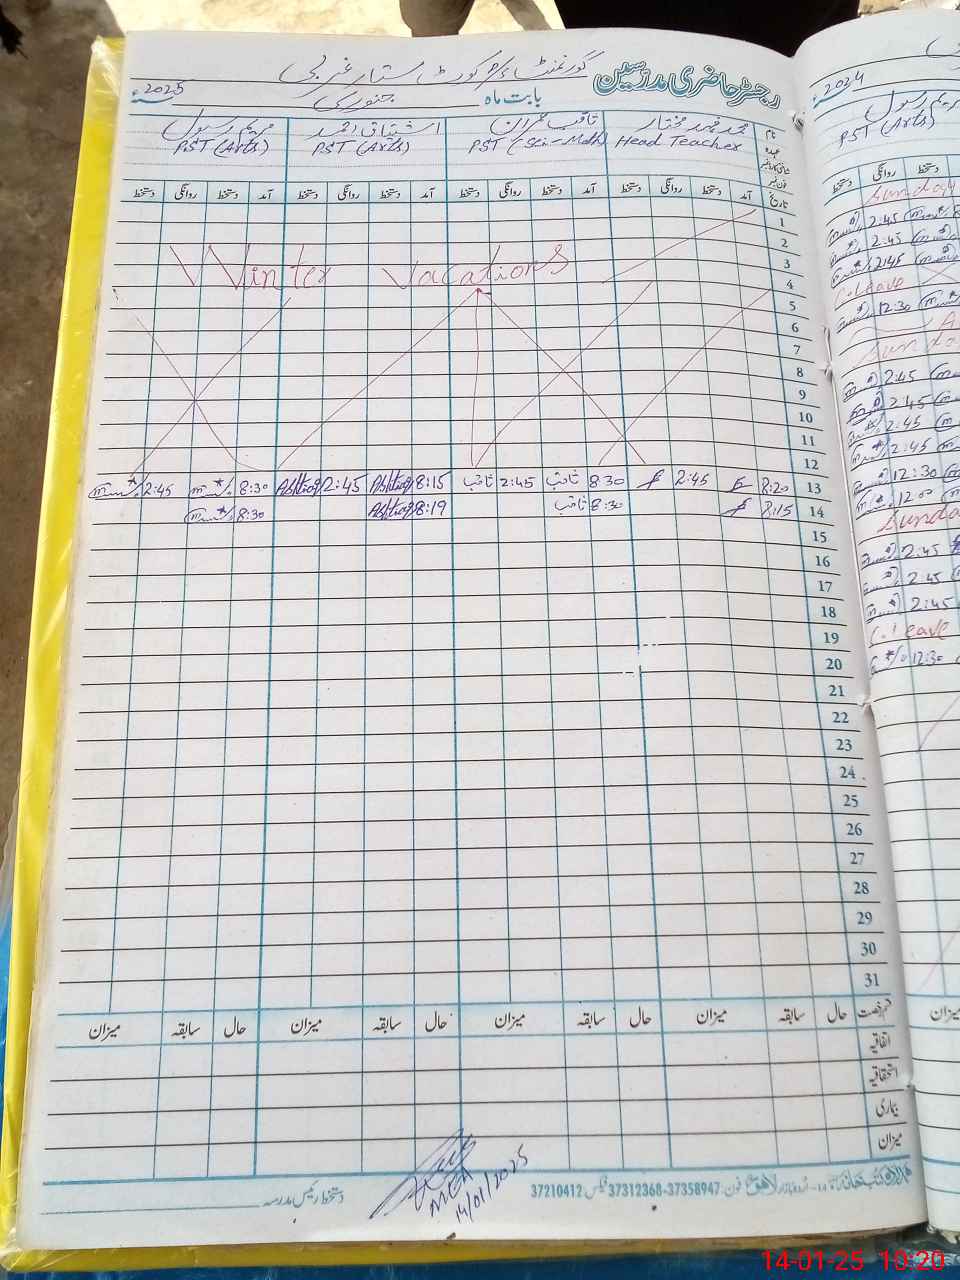 رجسٹر حاضری مدرسین گورنمنٹ ستار غربی
بابت ماہ جنوری 2025
نام محمد فہد مختار ثاقب عمران اشتیاق احمد مریم رسول
عہدہ Head Teacher PST (Sci-Math) PST (Arts) PST (Arts)
تاریخ آمد دستخط روانگی دستخط آمد دستخط روانگی دستخط آمد دستخط روانگی دستخط آمد دستخط روانگی دستخط
1
2
3
Winter Vacations
4
5
6
7
8
9
10
11
12
13 8:20 2:45 8:30 ثاقب 2:45 ثاقب 8:15 Ashtiaq 2:45 Ashtiaq 8:30 2:45
14 8:15 8:30 ثاقب 8:19 Ashtiaq 8:30
15
16
17
18
19
20
21
22
23
24
25
26
27
28
29
30
31
قسم رخصت حال سابقہ میزان حال سابقہ میزان حال سابقہ میزان حال سابقہ میزان
اتفاقیہ
استحقاقیہ
بیماری
میزان
دستخط رئیس مدرسہ
14/01/2025
اردو بازار لاہور فون: 37358947-37312368 فیکس: 37210412
2024
مریم رسول
PST (Arts)
دستخط روانگی دستخط
Sunday
2:45
2:45
2:45
C.leave
12:30
Sunday
2:45
2:45
2:45
2:45
12:30
12:00
Sunday
2:45
2:45
2:45
C.leave
12:30
میزان
14-01-25 10:20